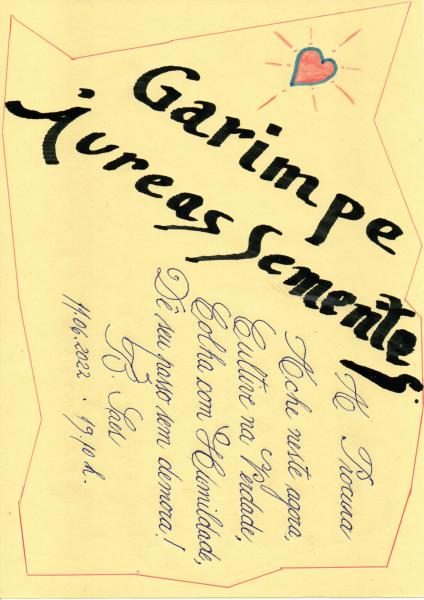 Garimpe
áureas Sementes.
À Procura
Ache neste agora,
Cultive na Verdade,
Colha com Humildade,
Dê seu passo sem demora!
11.06.2022 . 19.10 h.